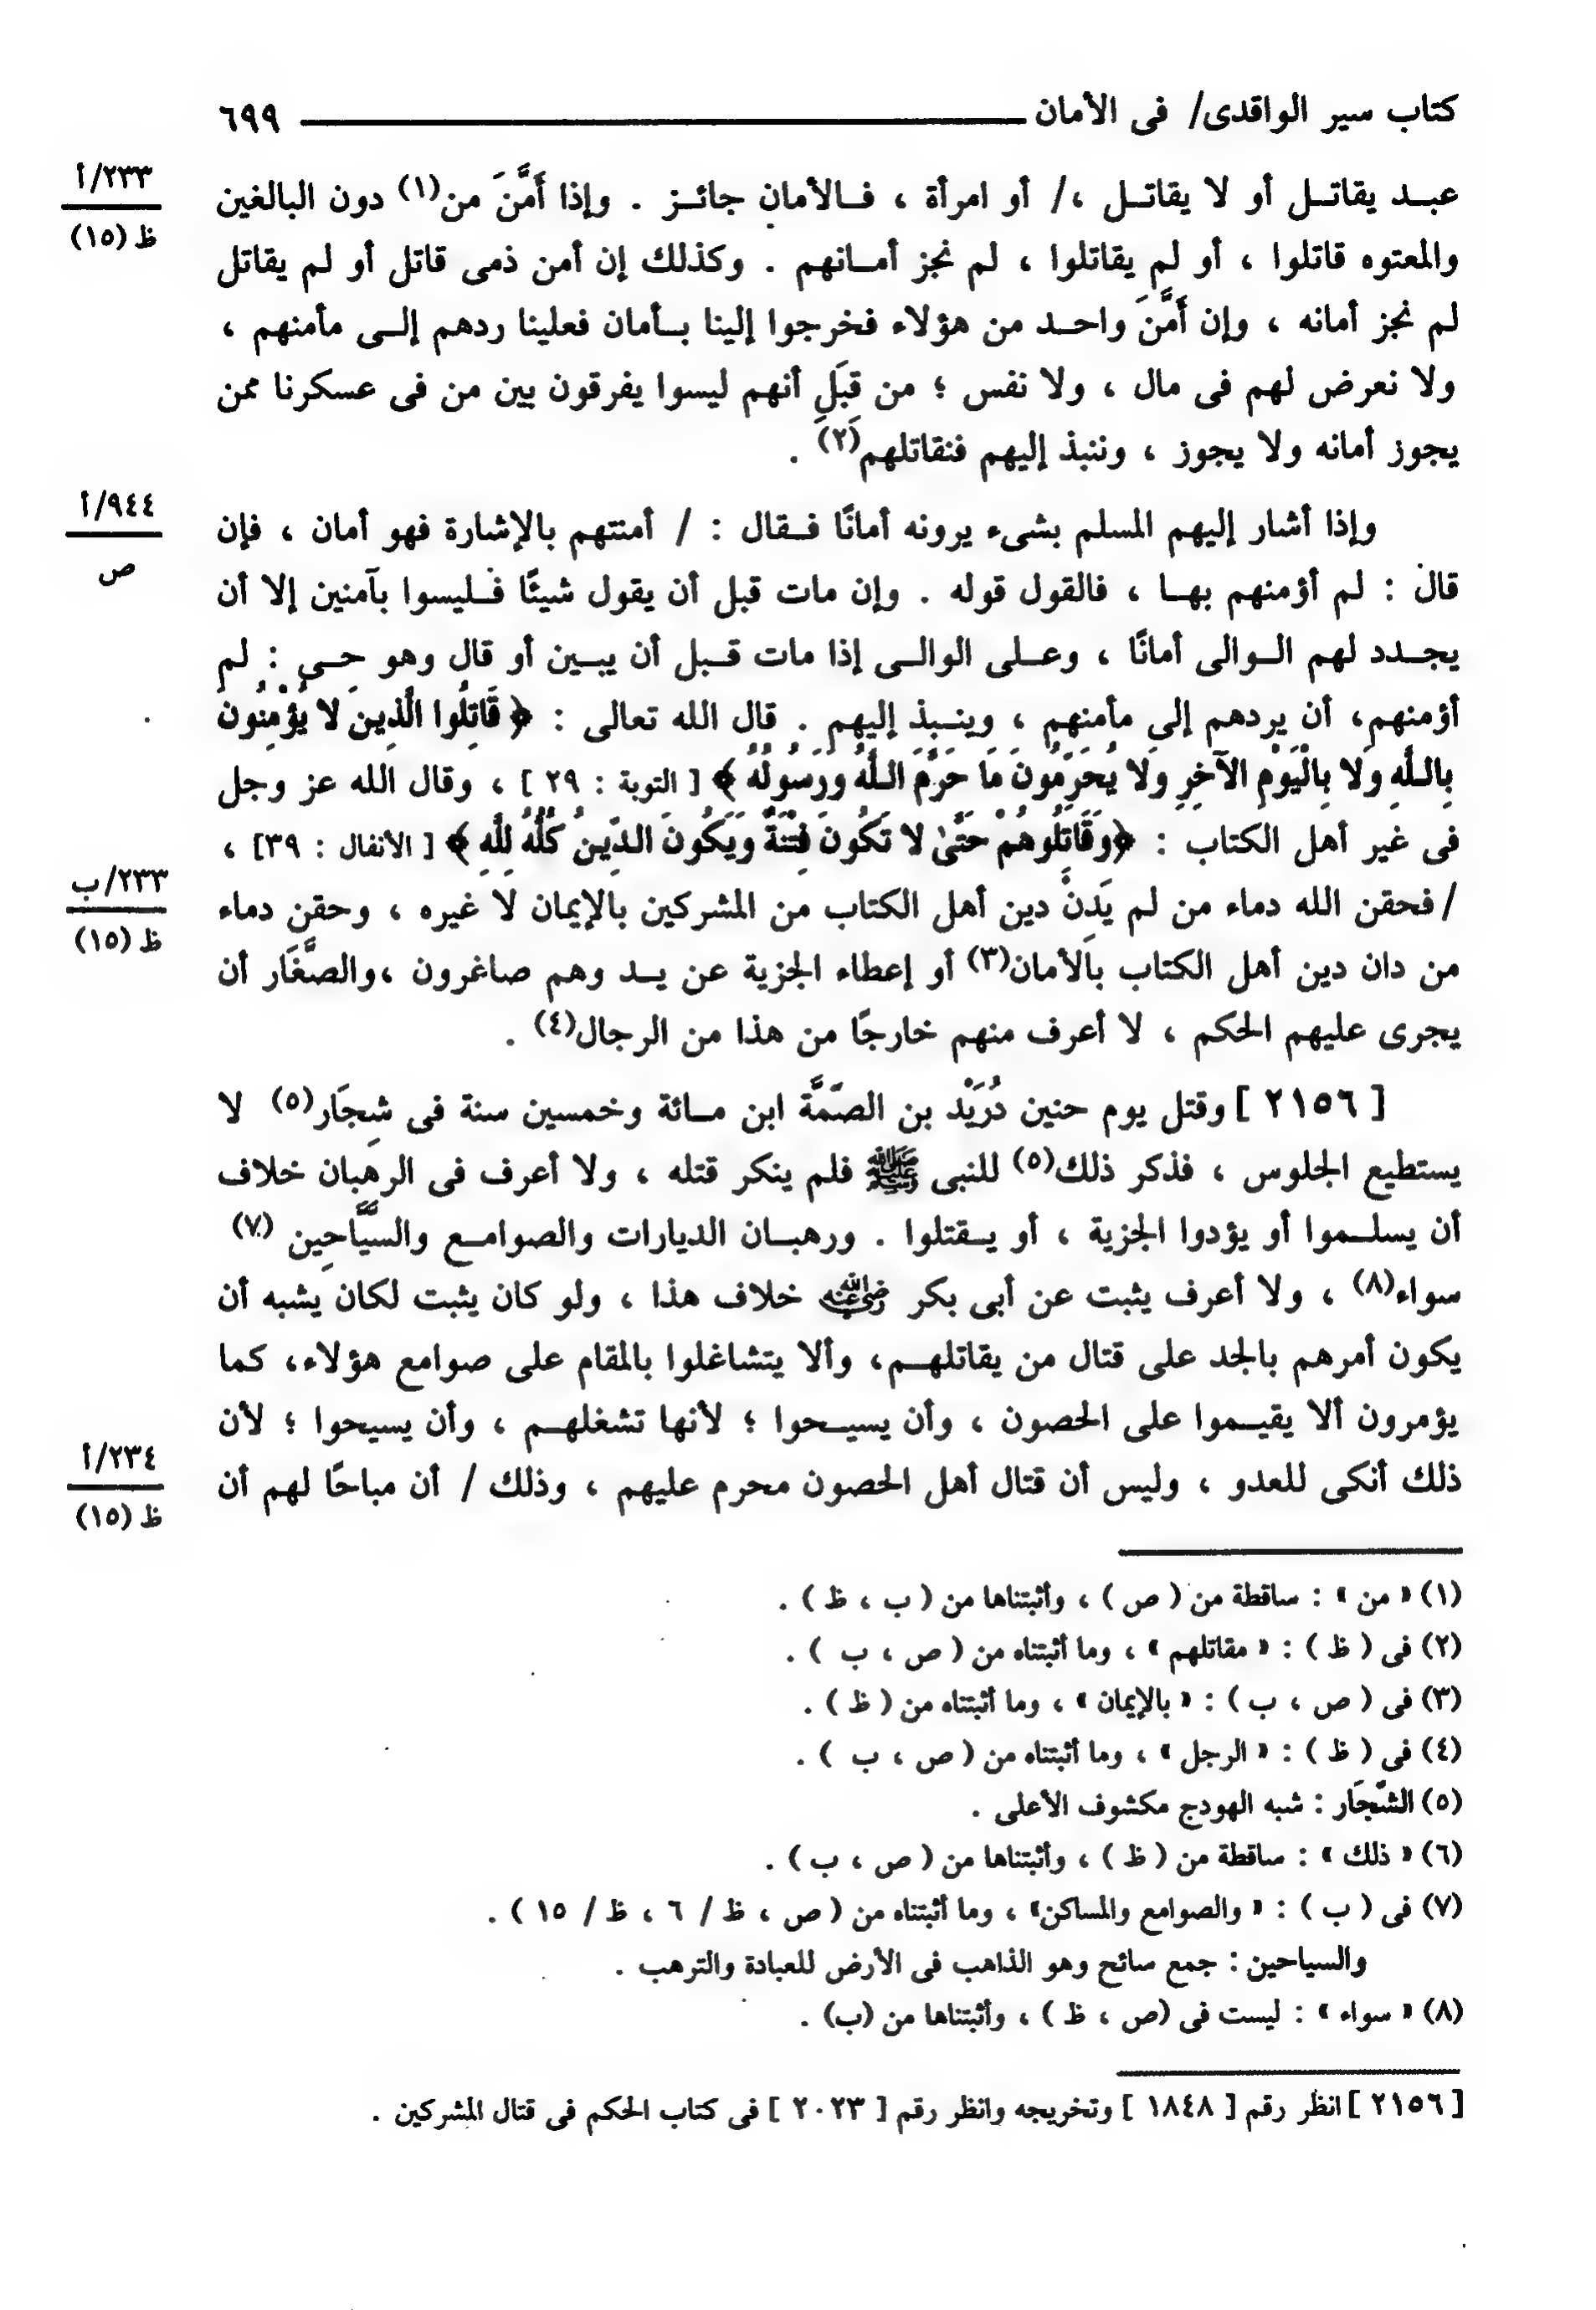 كتاب سير الواقدى/ فى الأمان ٦٩٩
٢٣٣/أ
ظ (١٥)
عبد يقاتل أو لا يقاتل ،/ أو امرأة ، فالأمان جائز . وإذا أَمَّنَ من(١) دون البالغين
والمعتوه قاتلوا ، أو لم يقاتلوا ، لم نجز أمانهم . وكذلك إن أمن ذمى قاتل أو لم يقاتل
لم نجز أمانه ، وإن أَمَّنَ واحد من هؤلاء فخرجوا إلينا بأمان فعلينا ردهم إلى مأمنهم ،
ولا نعرض لهم فى مال ، ولا نفس ؛ من قِبَلِ أنهم ليسوا يفرقون بين من فى عسكرنا ممن
يجوز أمانه ولا يجوز ، وننبذ إليهم فنقاتلهم(٢) .
٩٤٤/أ
ص
وإذا أشار إليهم المسلم بشىء يرونه أمانًا فقال : / أمنتهم بالإشارة فهو أمان ، فإن
قال : لم أؤمنهم بها ، فالقول قوله . وإن مات قبل أن يقول شيئًا فليسوا بآمنين إلا أن
يجدد لهم الوالى أمانًا ، وعلى الوالى إذا مات قبل أن يبين أو قال وهو حى : لم
أؤمنهم، أن يردهم إلى مأمنهم ، وينبذ إليهم . قال الله تعالى : ﴿ قَاتِلُوا الَّذِينَ لا يُؤْمِنُونَ
بِاللَّهِ وَلا بِالْيَوْمِ الآخِرِ وَلا يُحَرِّمُونَ مَا حَرَّمَ اللَّهُ وَرَسُولُهُ ﴾ [ التوبة : ٢٩ ] ، وقال الله عز وجل
فى غير أهل الكتاب : ﴿وَقَاتِلُوهُمْ حَتَّىٰ لا تَكُونَ فِتْنَةٌ وَيَكُونَ الدِّينُ كُلُّهُ لِلَّهِ ﴾ [ الأنفال : ٣٩] ،
٢٣٣/ب
ظ (١٥)
/ فحقن الله دماء من لم يَدِنْ دين أهل الكتاب من المشركين بالإيمان لا غيره ، وحقن دماء
من دان دين أهل الكتاب بالأمان(٣) أو إعطاء الجزية عن يد وهم صاغرون ،والصَّغَار أن
يجرى عليهم الحكم ، لا أعرف منهم خارجًا من هذا من الرجال(٤) .
[ ٢١٥٦ ] وقتل يوم حنين دُرَيْد بن الصِّمَّة ابن مائة وخمسين سنة فى شِجَار(٥) لا
يستطيع الجلوس ، فذكر ذلك(٥) للنبى ﷺ فلم ينكر قتله ، ولا أعرف فى الرهبان خلاف
أن يسلموا أو يؤدوا الجزية ، أو يقتلوا . ورهبان الديارات والصوامع والسيَّاحِين (٧)
سواء(٨) ، ولا أعرف يثبت عن أبى بكر رضي الله عنه خلاف هذا ، ولو كان يثبت لكان يشبه أن
يكون أمرهم بالجد على قتال من يقاتلهم، وألا يتشاغلوا بالمقام على صوامع هؤلاء، كما
يؤمرون ألا يقيموا على الحصون ، وأن يسيحوا ؛ لأنها تشغلهم ، وأن يسيحوا ؛ لأن
٢٣٤/أ
ظ (١٥)
ذلك أنكى للعدو ، وليس أن قتال أهل الحصون محرم عليهم ، وذلك / أن مباحًا لهم أن
(١) « من » : ساقطة من ( ص ) ، وأثبتناها من ( ب ، ظ ) .
(٢) فى ( ظ ) : « مقاتلهم » ، وما أثبتناه من ( ص ، ب ) .
(٣) فى ( ص ، ب ) : « بالإيمان » ، وما أثبتناه من ( ظ ) .
(٤) فى ( ظ ) : « الرجل » ، وما أثبتناه من ( ص ، ب ) .
(٥) الشِّجَار : شبه الهودج مكشوف الأعلى .
(٦) « ذلك » : ساقطة من ( ظ ) ، وأثبتناها من ( ص ، ب ) .
(٧) فى ( ب ) : « والصوامع والمساكن» ، وما أثبتناه من ( ص ، ظ / ٦ ، ظ / ١٥ ) .
والسياحين : جمع سائح وهو الذاهب فى الأرض للعبادة والترهب .
(٨) « سواء » : ليست فى (ص ، ظ ) ، وأثبتناها من (ب) .
[ ٢١٥٦ ] انظر رقم [ ١٨٤٨ ] وتخريجه وانظر رقم [ ٢٠٢٣ ] فى كتاب الحكم فى قتال المشركين .